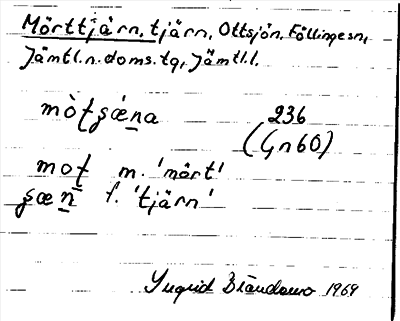 Mörttjärn, tjärn, Ottsjön, Föllinge sn,
Jämtl.n.doms.tg, Jämtl.l.
mò̀tʂǽna 236
(Gn60)
mot m. 'mört'
ʂæn f. 'tjärn'
Ingrid 1969